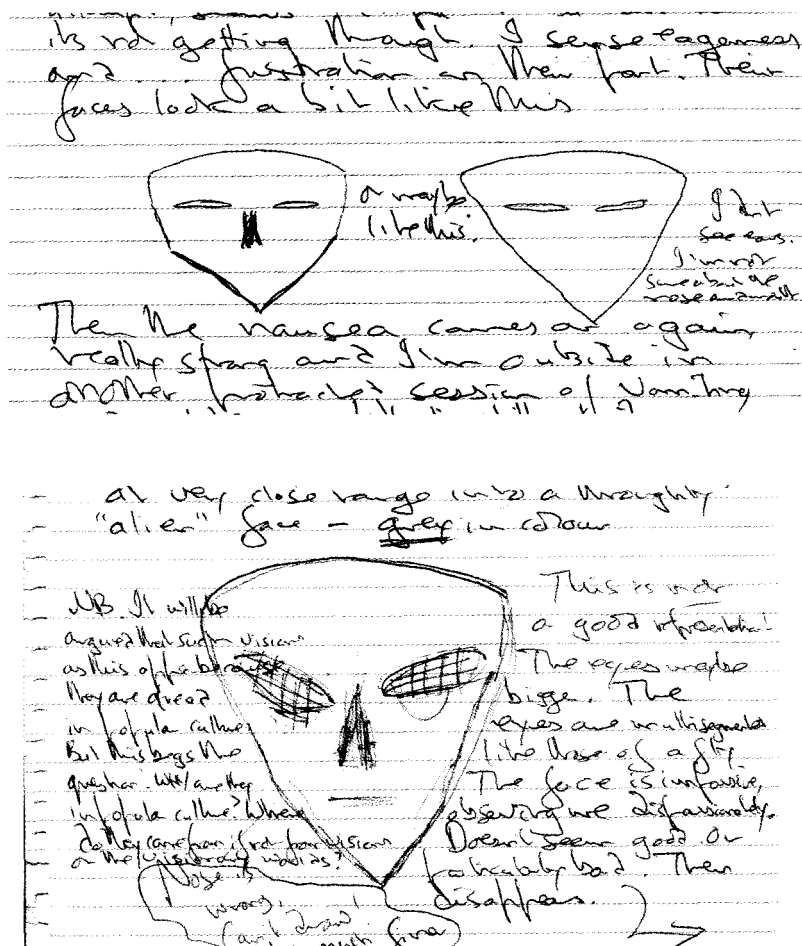 its not getting through. I sense eagerness
and ... frustration on their part. Their
faces look a bit like this
or maybe
like this.
I don't
see ears.
I'm not
sure about the
nose and mouth.
Then the nausea comes on again
really strong and I'm outside in
another protracted session of vomiting
at very close range into a thoroughly
"alien" face - grey in colour
NB. It will be
argued that such visions
as this appear because
they are
in popular culture.
But this begs the
question. Why are they
in popular culture? Where
do they come from if not from visions
or the visionary worlds?
This is not
a good representation!
The eyes maybe
bigger. The
eyes are multisegmented
like those of a fly.
The face is impassive,
observing me dispassionately.
Doesn't seem good or
particularly bad. Then
disappears.
Nose is
wrong,
can't draw!
much finer